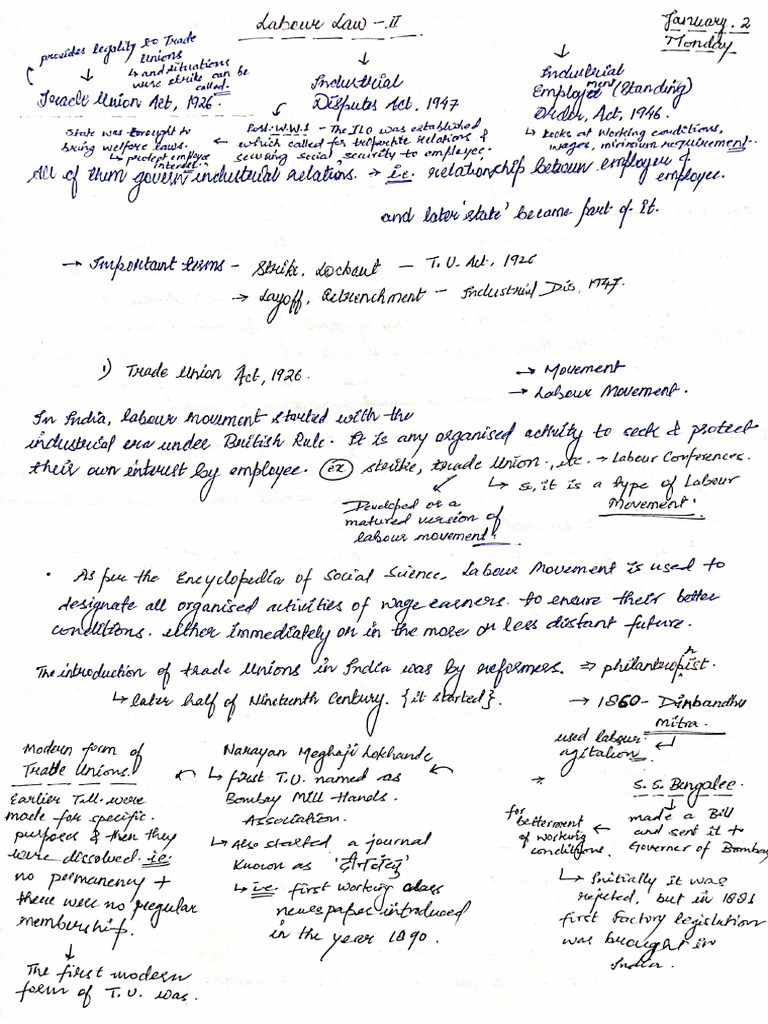 Labour Law - II
January. 2
Monday
provides legality to Trade
Unions
↳ and situations
were strike can be
called.
Trade Union Act, 1926.
Industrial
Disputes Act, 1947
Industrial
Employment (Standing)
Order, Act, 1946.
↳ Looks at working conditions,
wages, minimum requirement.
Post. W.W.1 - The ILO was established
which called for tripartite relations &
securing social security to employee.
State was brought to
bring welfare laws.
↳ protect employee
interest.
All of them govern industrial relations. → i.e. relationship between employee &
employee.
and later 'state' became part of it.
→ Important terms - Strike, Lockout - T.U. Act, 1926
→ Layoff, Retrenchment - Industrial Dis, 1947.
1) Trade Union Act, 1926.
→ Movement
→ Labour Movement.
In India, labour movement started with the
industrial era under British Rule. It is any organised activity to seek & protect
their own interest by employee. (ex) strike, trade union, etc. → Labour Conferences.
↳ So, it is a type of Labour
Movement.
Developed or a
matured version of
labour movement.
• As per the Encyclopedia of Social Science, Labour Movement is used to
designate all organised activities of wage earners to ensure their better
conditions. either immediately or in the more or less distant future.
The introduction of trade unions in India was by reformers. ⇒ philanthropist.
↳ later half of Nineteenth Century. {it started}.
→ 1860 - Dinbandhu
Mitra.
used labour
agitation.
S. S. Bengalee.
made a Bill
and sent it to
Governer of Bombay
for
betterment
of working
conditions.
↳ Initially it was
rejected, but in 1881
first Factory legislation
was brought in
India.
Narayan Meghaji Lokhande
↳ first T.U. named as
Bombay Mill Hands.
Association.
↳ Also started a journal
known as 'दीनबंधु'
↳ i.e. first working class
newspaper introduced
in the year 1890.
Modern form of
Trade Unions.
Earlier T.U. were
made for specific.
purposes & then they
were dissolved i.e.
no permanency +
there were no regular
membership.
↓
The first modern
form of T.U. was.